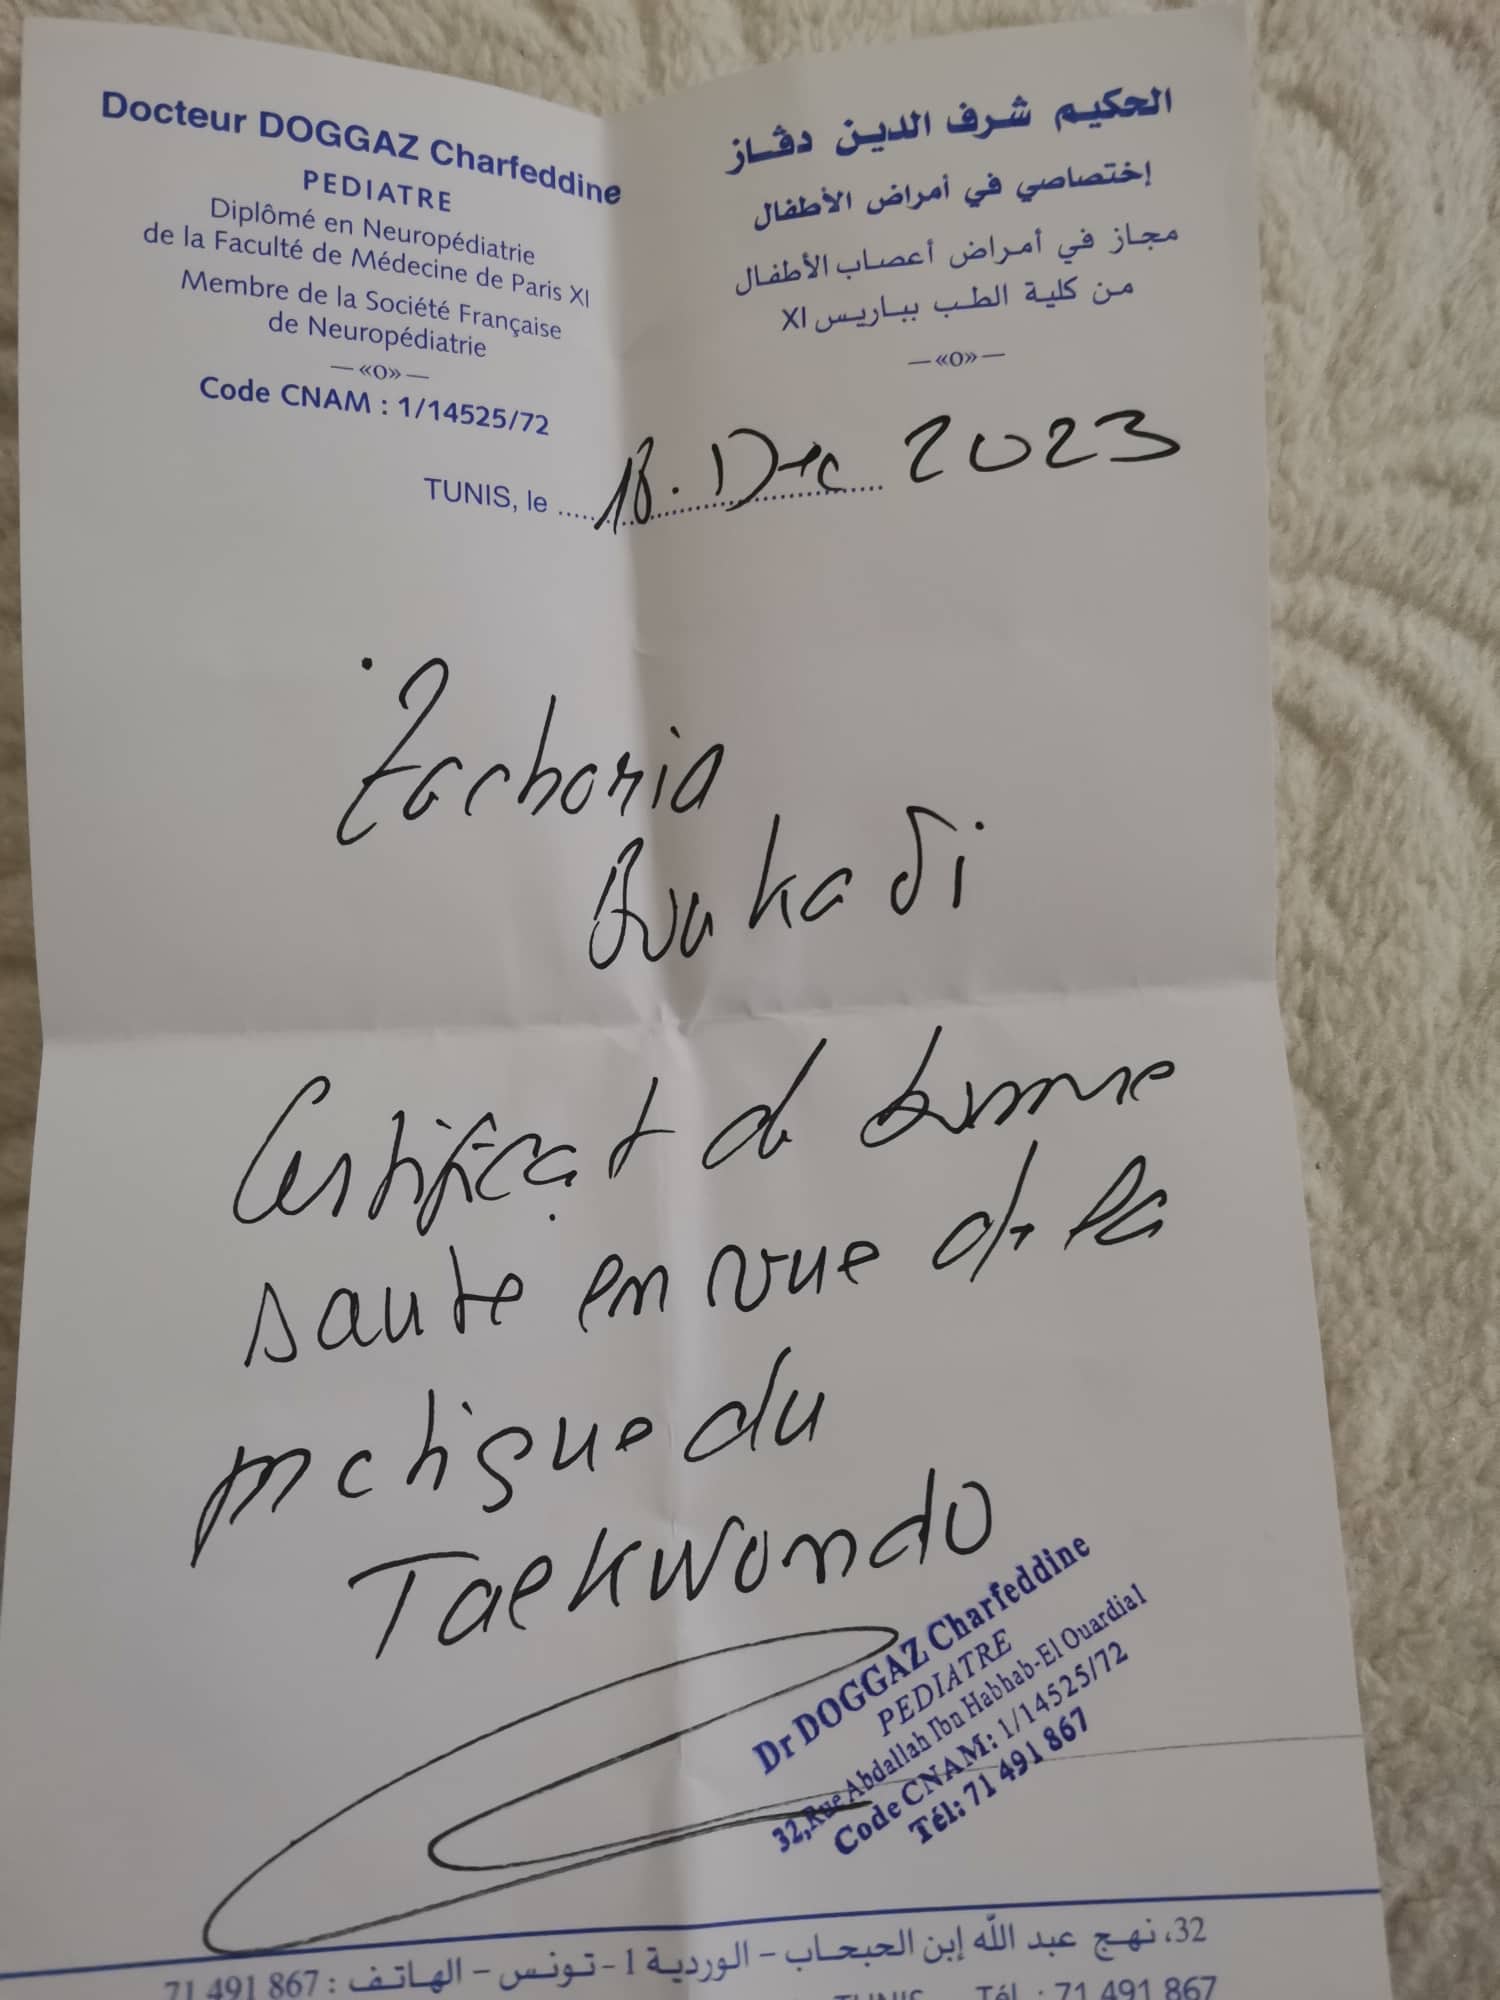 Docteur DOGGAZ Charfeddine
PEDIATRE
Diplômé en Neuropédiatrie
de la Faculté de Médecine de Paris XI
Membre de la Société Française
de Neuropédiatrie
—«o»—
Code CNAM : 1/14525/72
الحكيم شرف الدين دڤـاز
إختصاصي في أمراض الأطفال
مجاز في أمراض أعصاب الأطفال
من كلية الطب بباريس XI
—«o»—
TUNIS, le 18. Dec 2023
Zacharia
Certificat de bonne
sante en vue de la
pratique du
Taekwondo
Dr DOGGAZ Charfeddine
PEDIATRE
32,Rue Abdallah Ibn Habhab-El Ouardia1
Code CNAM: 1/14525/72
Tél: 71 491 867
32، نهج عبد الله إبن الحبحاب – الوردية 1 - تونس – الهاتف : 867 491 71
TUNIS Tél : 71 491 867